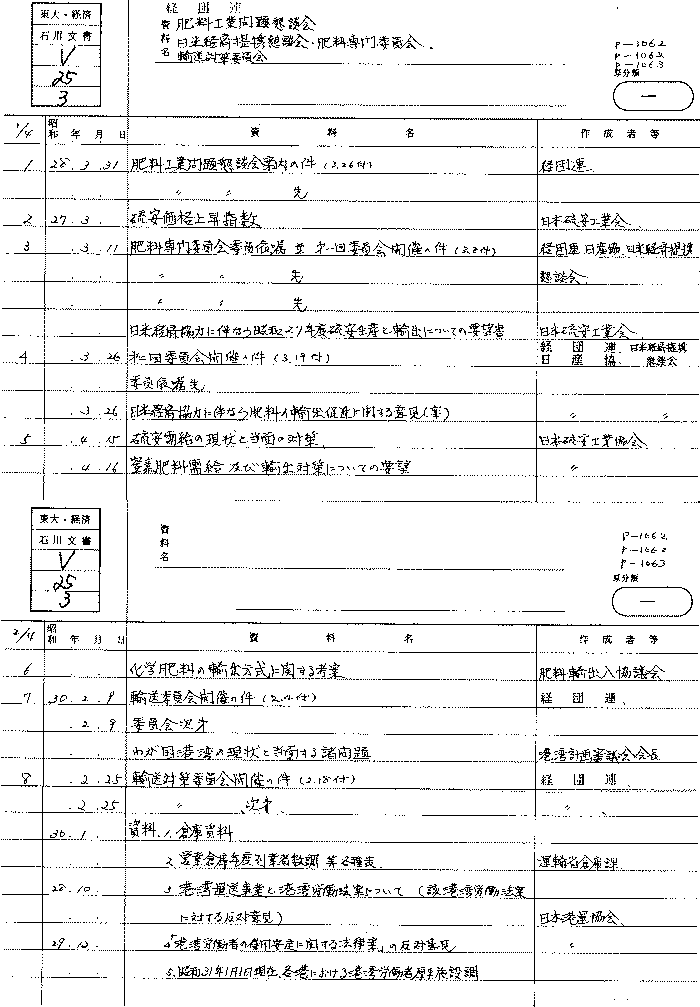 経団連
東大・経済
石川文書
V
25
3
資料名
肥料工業問題懇談会
日米経済提携懇談会・肥料専門委員会
輸送対策委員会
P-1062
P-1062
P-1063
原分類
一
1/4 昭和 年 月 日 資料名 作成者等
1 28. 3. 31 肥料工業問題懇談会案内の件(3.26付) 経団連
〃 〃 先
2 27. 3. 硫安価格上昇指数 日本硫安工業会
3 . 3. 11 肥料専門委員会委員依嘱並第一回委員会開催の件 経団連 日産協 日米経済提携
懇談会
〃 〃 先
〃 〃 先
日米経済協力に伴なう昭和27年度硫安生産と輸出についての要望書 日本硫安工業会
4 . 3. 26 第二回委員会開催の件(3.19付) 経団連、日米経済提携
日産協、懇談会
委員依嘱先
. 3. 26 日米経済協力に伴なう肥料の輸出促進に関する意見(案) 〃 〃
5 . 4. 15 硫安需給の現状と当面の対策 日本硫安工業協会
. 4. 16 窒素肥料需給及び輸出対策についての要望 〃
東大・経済
石川文書
V
25
3
資料名
P-1062
P-1062
P-1063
原分類
一
2/4 昭和 年 月 日 資料名 作成者等
6 化学肥料の輸出方式に関する考案 肥料輸出入協議会
7 30. 2. 9 輸送委員会開催の件(2.4付) 経団連
. 2. 9 委員会次才
わが国港湾の現状と当面する諸問題 港湾計画審議会会長
8 . 2. 25 輸送対策委員会開催の件(2.18付) 経団連
. 2. 25 〃 次才 〃
30. 1. 資料 1. 倉庫資料
2. 営業倉庫年度別業者数調 等各種表 運輸省倉庫課
28. 10. 3. 港湾運送事業と港湾労働法案について(該港湾労働法案
に対する反対意見) 日本港運協会
29. 12. 4.「港湾労働者の雇用安定に関する法律案」の反対意見 〃
5. 昭和31年1月1日現在各港における港湾労働者厚生施設調